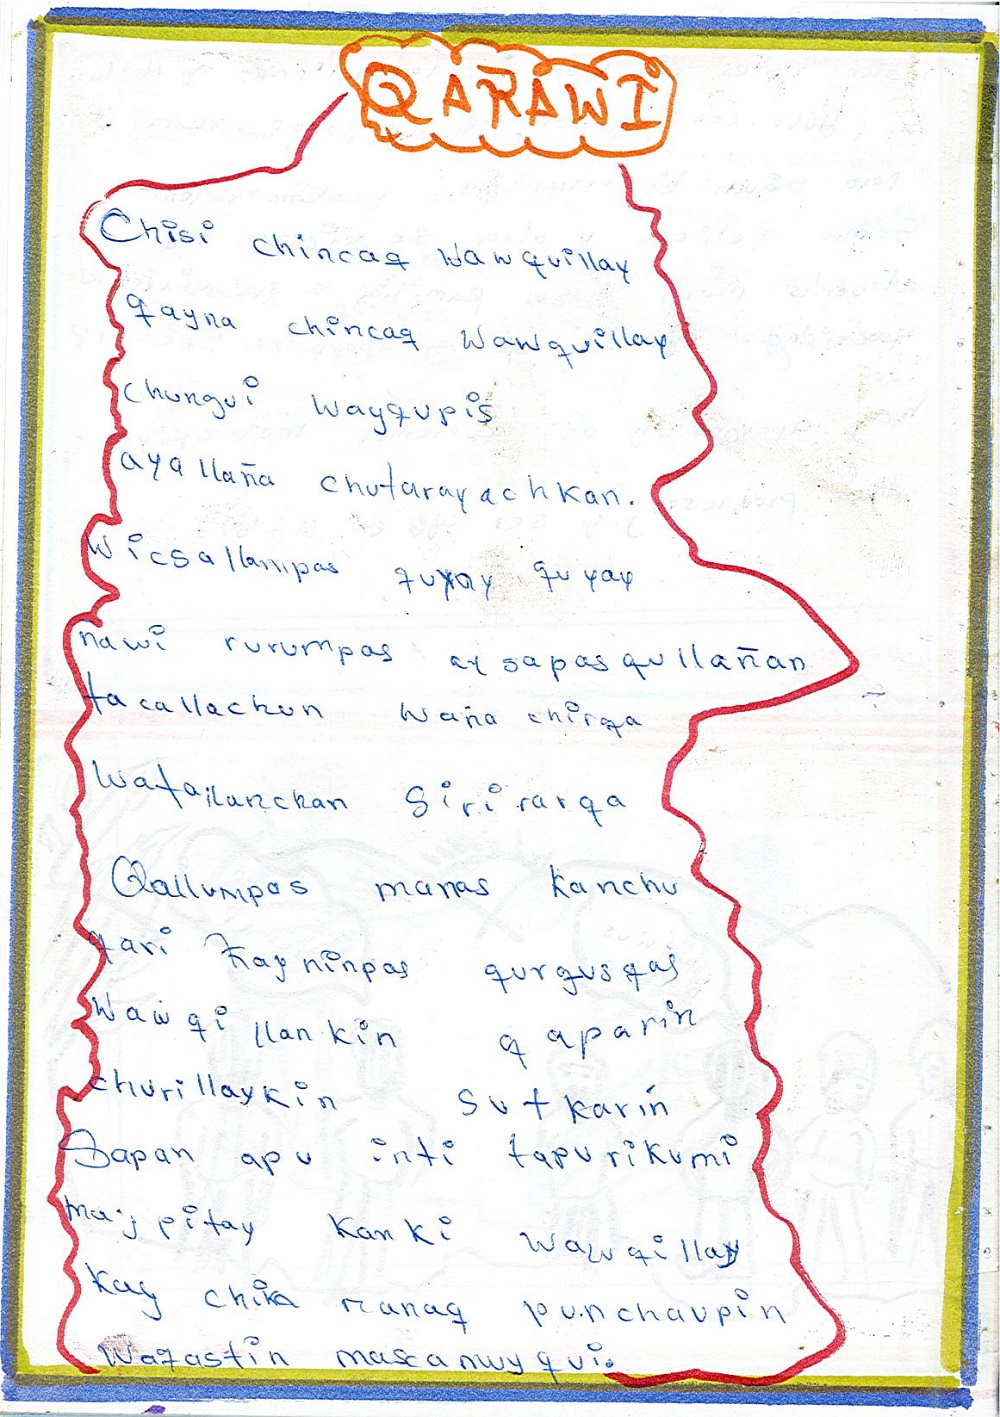 QARAWI
Chisi chincaq wawquillay
qayna chincaq wawquillay
chungui wayqupis
ayallaña chutarayachkan.
Wicsallampas quyay quyay
ñawi rurumpas aysapasqullañan
tacallachun waña chirqa
watallanckan Siri rarqa
Qallumpas manas kanchu
qari kayninpas qurqusqas
Wawqi llankin qaparin
churillaykin sutkarin
Sapan apu inti tapurikumi
maypitay kanki wawqillay
kay chika manaq punchaupin
waqastin mascamuyqui.